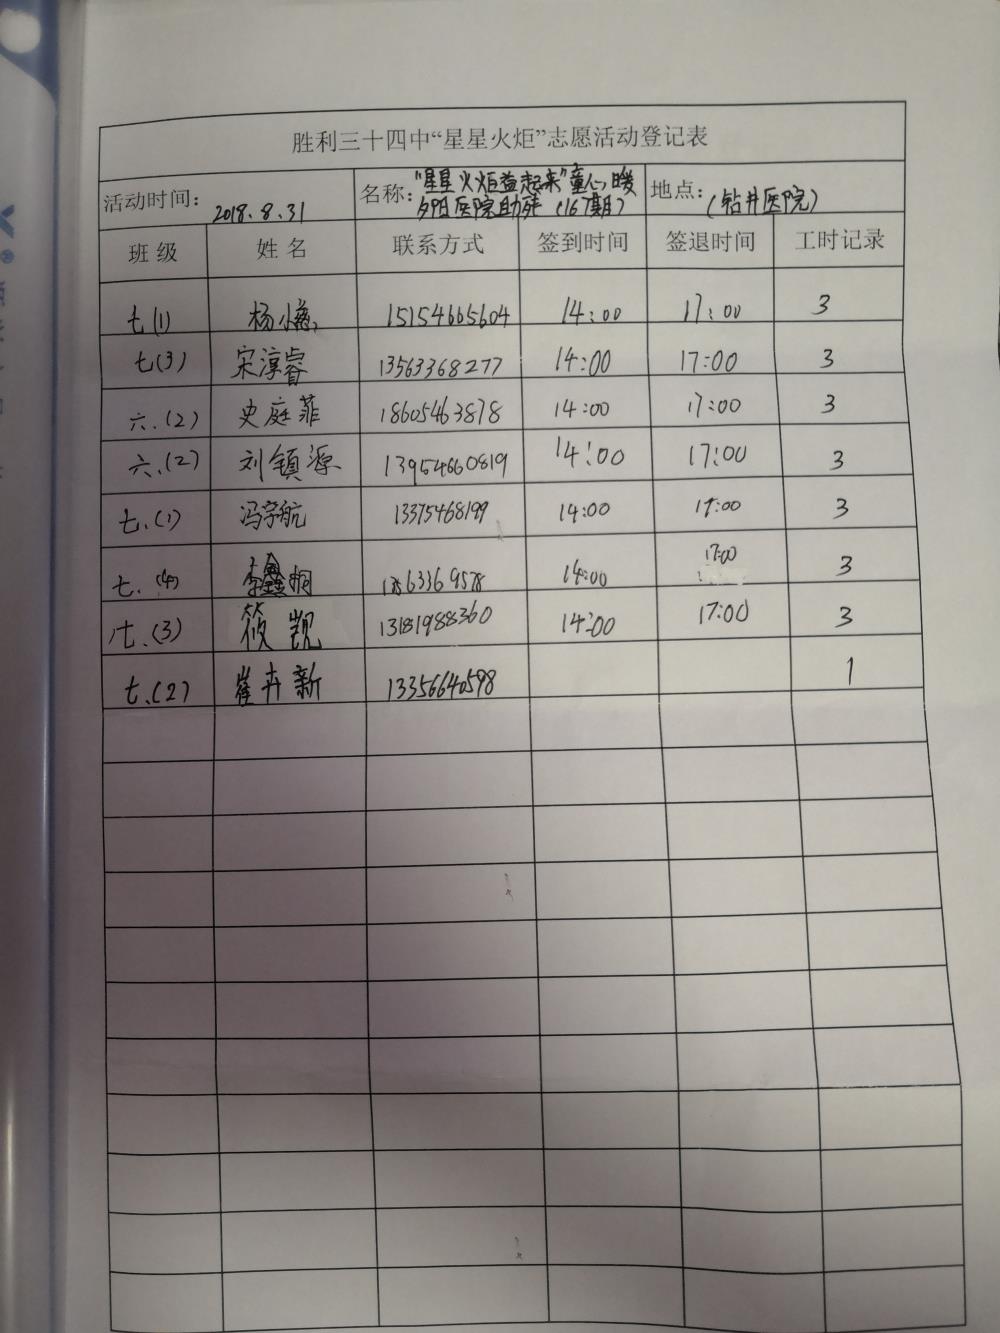 胜利三十四中“星星火炬”志愿活动登记表
活动时间: 2018.8.31 名称: "星星火炬益起来"童心暖
夕阳医院助残(167期) 地点: (钻井医院)
班级 姓名 联系方式 签到时间 签退时间 工时记录
七(1) 杨小 15154665604 14:00 17:00 3
七(3) 宋淳睿 13563368277 14:00 17:00 3
六.(2) 史庭菲 18605463878 14:00 17:00 3
六.(2) 刘镇源 13954660819 14:00 17:00 3
七.(1) 冯宇航 13375468199 14:00 17:00 3
七.(4) 李鑫桐 18563369578 14:00 17:00 3
七.(3) 筱觊 13181988360 14:00 17:00 3
七.(2) 崔卉新 13356640598 1